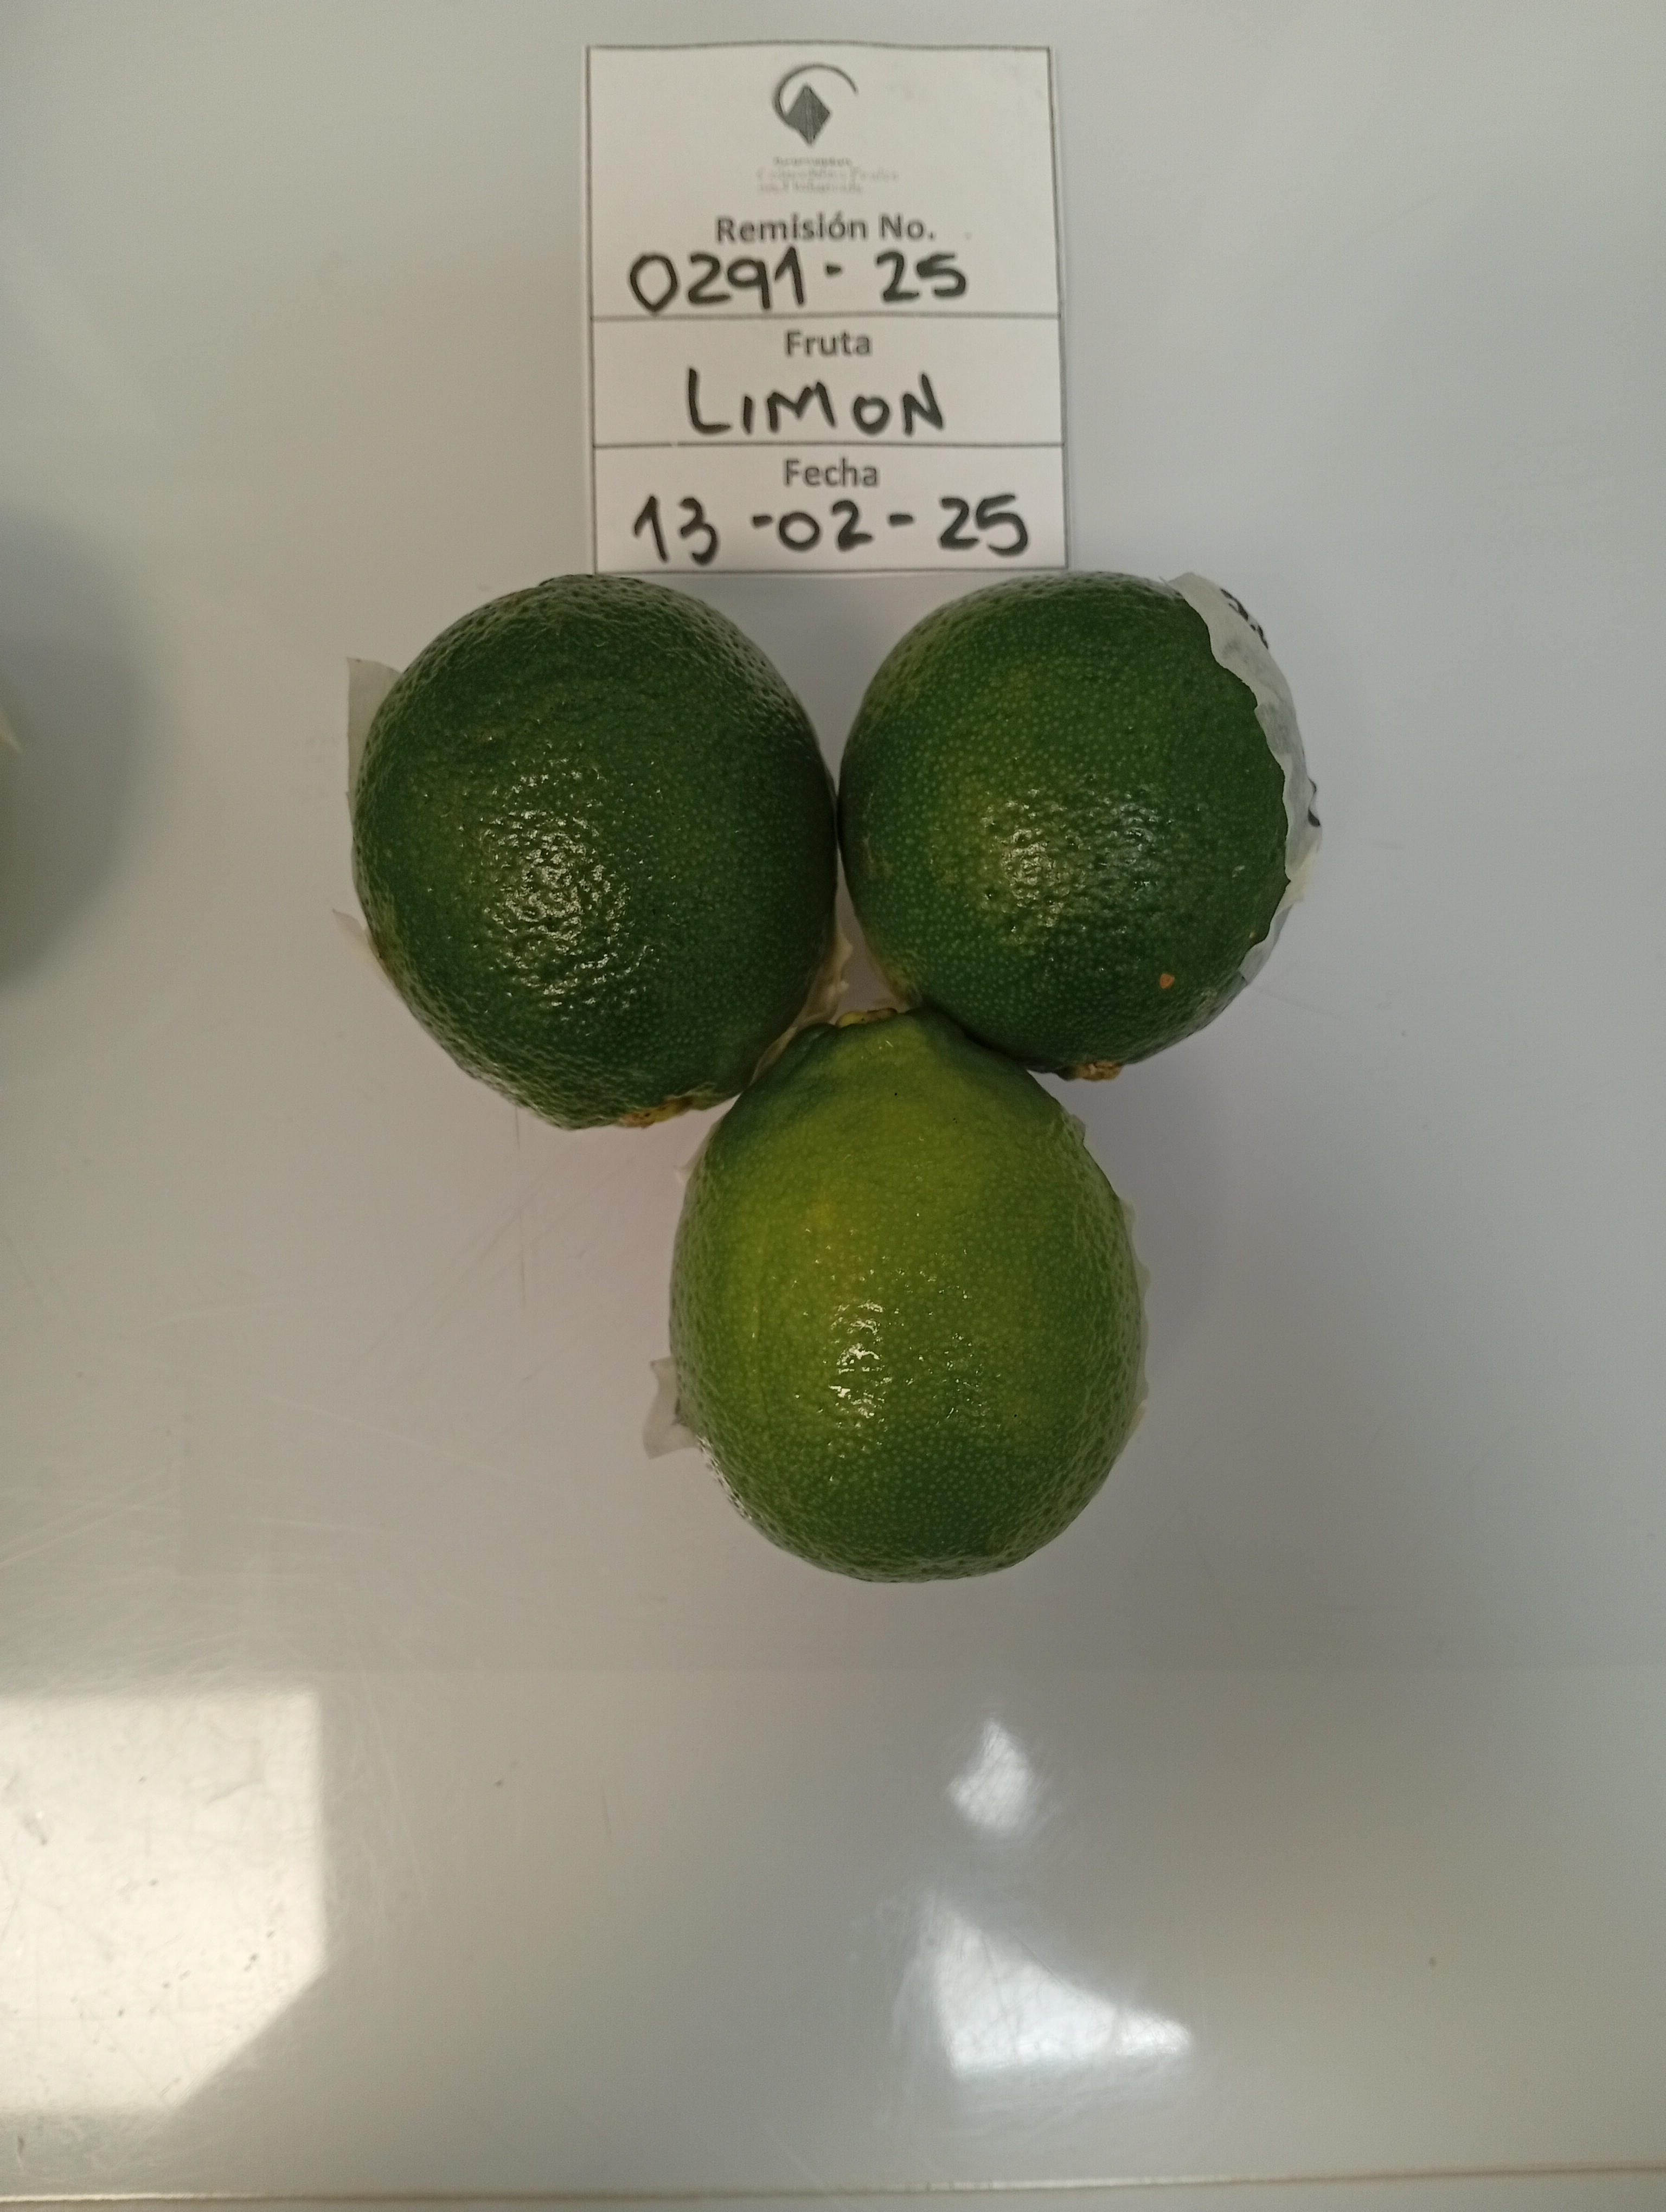 Remisión No.
0291-25
Fruta
LIMON
Fecha
13-02-25